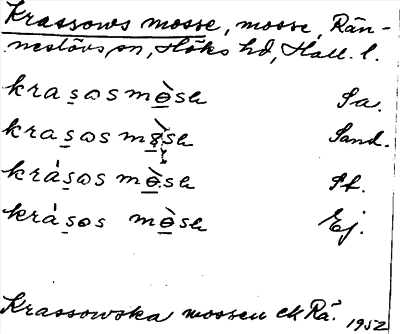 Krassows mosse, mosse, Rän-
neslövs sn, Höks hd, Hall. l.
krasos mòse Sa.
krasos mòse Sand.
krásos mòse St.
krásos mòse Ej.
Krassowska mossen ek Rä. 1952